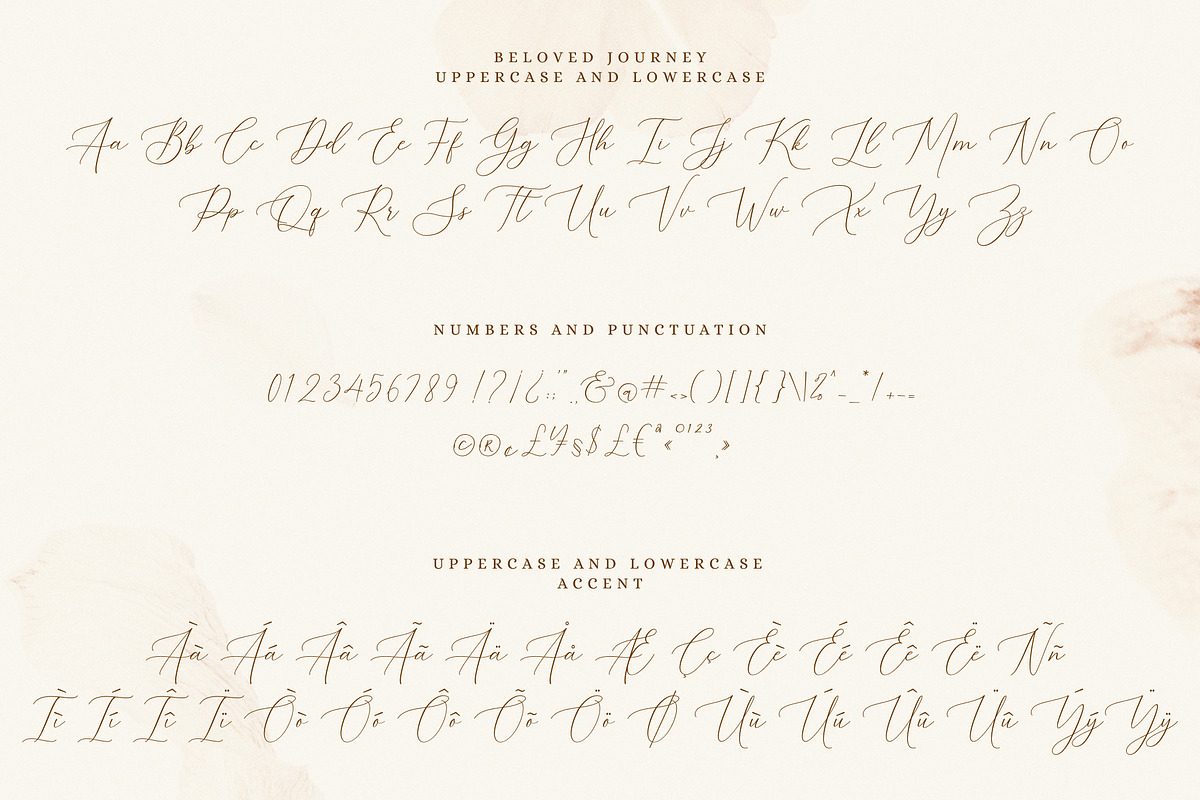 BELOVED JOURNEY
UPPERCASE AND LOWERCASE
Aa Bb Cc Dd Ee Ff Gg Hh Ii Jj Kk Ll Mm Nn Oo
Pp Qq Rr Ss Tt Uu Vv Ww Xx Yy Zz
NUMBERS AND PUNCTUATION
0123456789 !?/¿:;'".,&@#<>()[]{}\|%^-_*/+-=
©®¢£¥§$£€ª«⁰¹²³¸»
UPPERCASE AND LOWERCASE
ACCENT
Àà Áá Ââ Ãã Ää Åå Æ Çç Èè Éé Êê Ëë Ññ
Ìì Íí Îî Ïï Òò Óó Ôô Õõ Öö Ø Ùù Úú Ûû Üû Ýý Ÿÿ